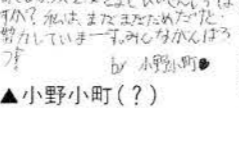 すか?私は、まだまだだめだけど
努力していまーす。みんながんばろ
うぜ
by 小野小町
▲小野小町(?)